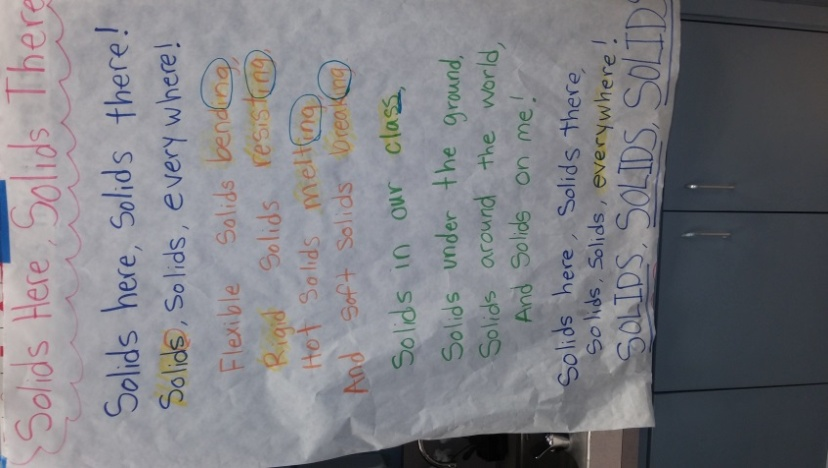 Solids Here, Solids There
Solids here, Solids there!
Solids, Solids, everywhere!
Flexible Solids bending,
Rigid Solids resisting,
Hot Solids melting
And Soft Solids breaking
Solids in our class,
Solids under the ground,
Solids around the world,
And Solids on me!
Solids here, Solids there,
Solids, Solids, everywhere!
SOLIDS, SOLIDS, SOLIDS